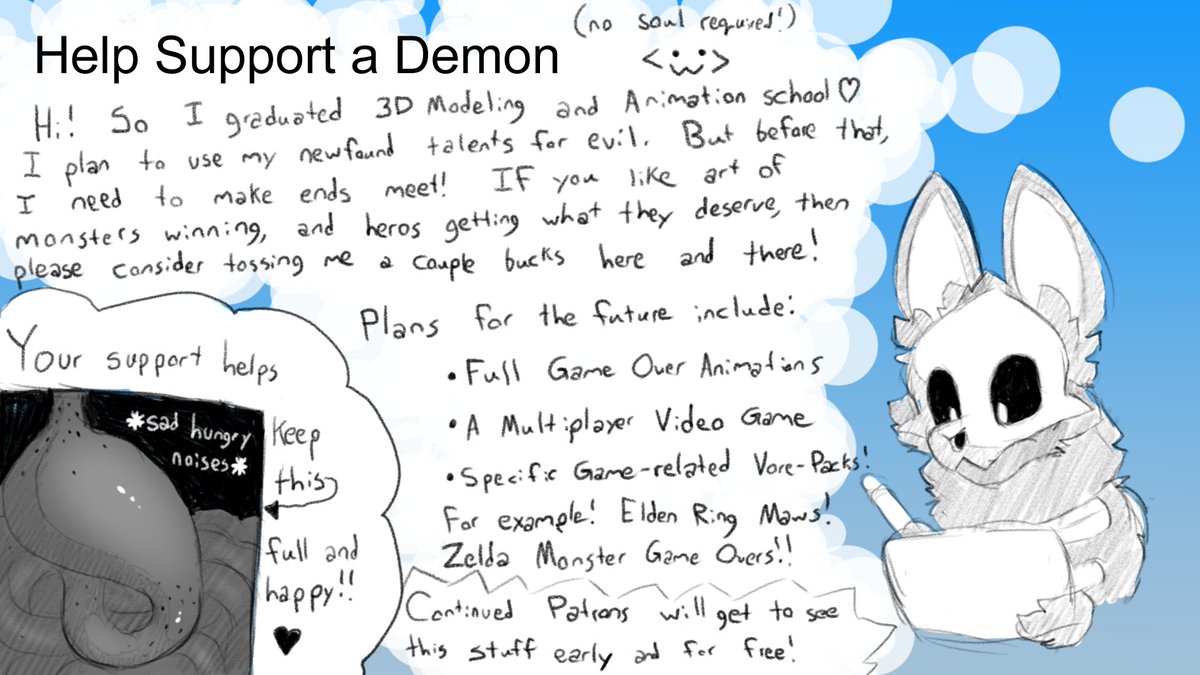 (no soul required!)
Help Support a Demon
Hi! So I graduated 3D Modeling and Animation school ♡
I plan to use my newfound talents for evil. But before that,
I need to make ends meet! IF you like art of
monsters winning, and heros getting what they deserve, then
please consider tossing me a couple bucks here and there!
Plans for the future include:
• Full Game Over Animations
• A Multiplayer Video Game
• Specific Game-related Vore-Packs!
For example! Elden Ring Maws!
Zelda Monster Game Overs!!
Continued Patrons will get to see
this stuff early and for free!
Your support helps
*sad hungry
noises*
Keep
this
full and
happy!!
♥